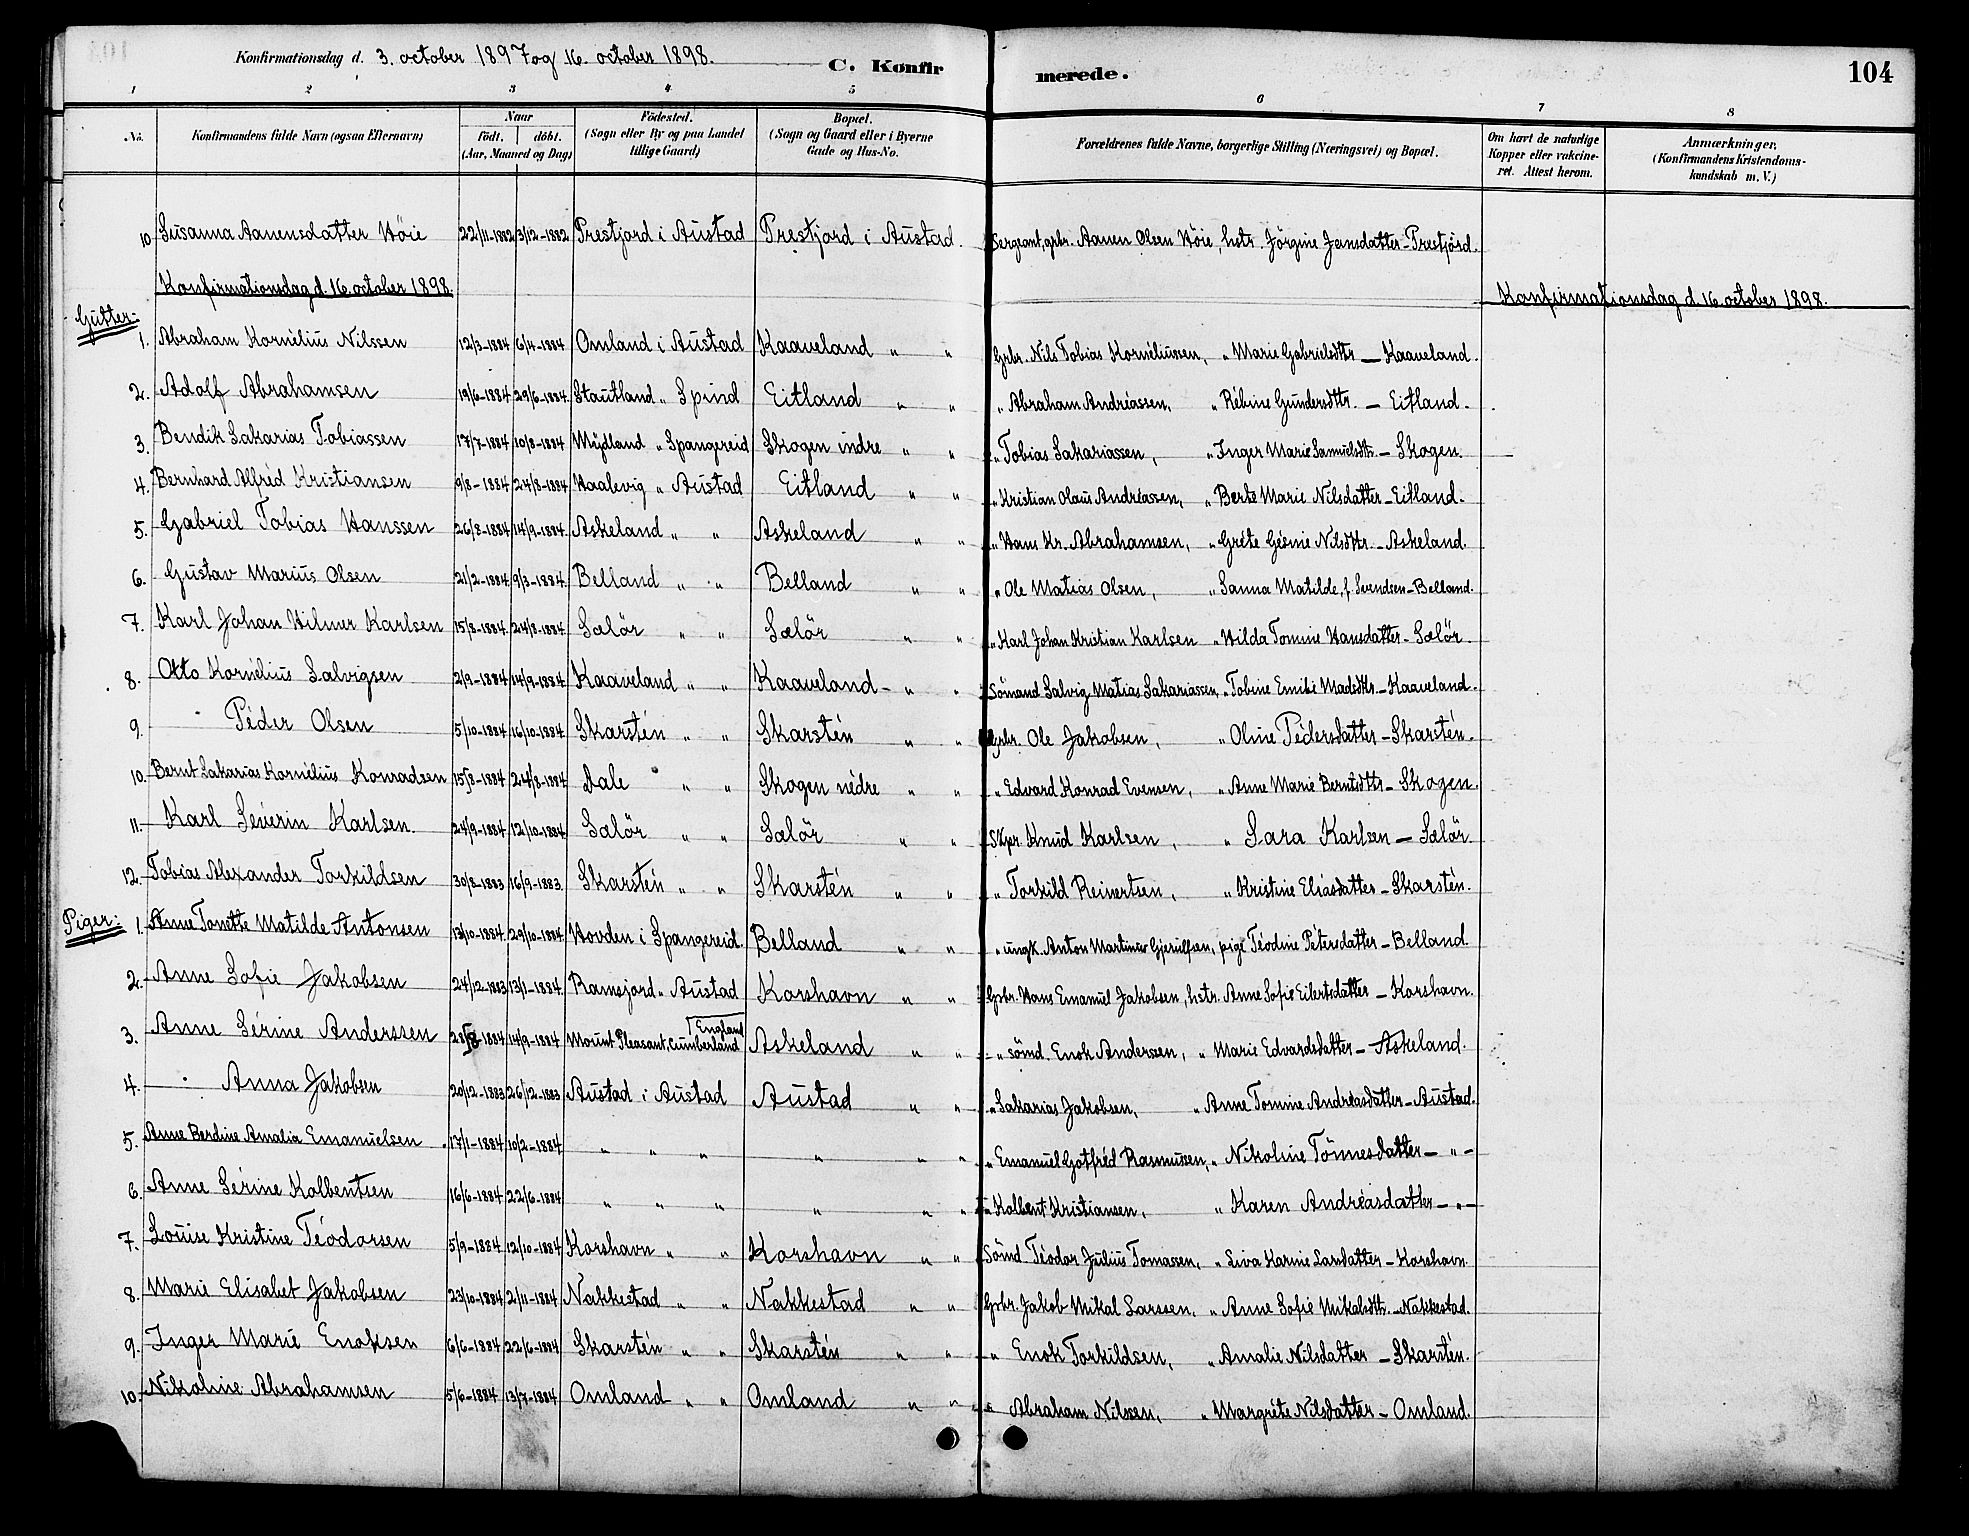 Konfirmationsdag d. 3. october 1897 og 16. october 1898. C. Konfirmerede. 104
1 2 3 4 5 6 7 8
No. Konfirmandens fulde Navn (ogsaa Efternavn) Naar født. døbt. (Aar, Maaned og Dag) Fødested. (Sogn eller By og paa Landet tillige Gaard) Bopæl. (Sogn og Gaard eller i Byerne Gade og Hus-No. Forældrenes fulde Navne, borgerlige Stilling (Næringsvei) og Bopæl. Om havt de naturlige Kopper eller vakcineret. Attest herom. Anmærkninger. (Konfirmandens Kristendomskundskab m. V.)
10 Susanna Aanensdatter Höie 22/11-1882 3/12-1882 Prestjord i Austad Prestjord i Austad. Sergeant, grbr. Aanen Olsen Höie, hstr. Jörgine Jensdatter - Prestjord.
Konfirmationsdag d. 16 october 1898. Konfirmationsdag d. 16 october 1898.
Gutter:
1. Abraham Kornélius Nilssen 12/3-1884 6/4-1884 Omland i Austad Kaaveland " " Grbr. Nils Tobias Kornéliussen, " Marie Gabrielsdtr - Kaaveland.
2. Adolf Abrahamsen 19/6-1884 29/6-1884. Stautland " Spind Eitland " " " Abraham Andréassen, " Rébine Gundersdtr. - Eitland.
3. Bendik Sakarias Tobiassen 17/7-1884 10/8-1884 Mydland " Spangereid Skogen indre " " " Tobias Sakariassen, " Inger Marie Samuelsdtr. - Skogen.
4. Bernhard Alfréd Kristiansen 9/8-1884 24/8-1884 Haalevig " Austad Eitland " " " Kristian Olaus Andréassen, " Berte Marie Nilsdatter - Eitland.
5. Gabriel Tobias Hanssen 26/8-1884 14/9-1884. Askeland " " Askeland " " " Hans Kr. Abrahamsen, " Gréte Gésine Nilsdtr. - Askeland.
6. Gustav Marius Olsen 21/2-1884 9/3-1884. Belland " " Belland " " " Ole Matias Olsen, " Sanna Matilde, f. Svendsen - Belland.
7. Karl Johan Hilmer Karlsen 15/8-1884. 24/8-1884. Sælör " " Sælör " " " Karl Johan Kristian Karlsen " Hilda Tomine Hansdatter - Sælör.
8. Otto Kornélius Salvigsen 2/9-1884 14/9-1884. Kaaveland " " Kaaveland - " " Sömand Salvig Matias Sakariassen, " Tobine Emilie Madsdtr. - Kaaveland.
9. Péder Olsen 5/10-1884 16/10-1884. Skarstén " " Skarstén " " Grbr. Ole Jakobsen, " Oline Pédersdatter - Skarstén.
10. Bernt Sakarias Kornélius Konradsen 15/8-1884 24/8-1884 Aale " " Skogen nédre " " " Edvard Konrad Evensen, " Anne Marie Berntsdtr - Skogen.
11. Karl Séverin Karlsen. 24/9-1884 12/10-1884 Sælör " " Sælör " " Skpr. Knud Karlsen, " Sara Karlsen - Sælör.
12. Tobias Alexander Torkildsen 30/8-1883 16/9-1883. Skarstén " " Skarstén " " " Torkild Reinertsen, " Kristine Eliasdatter - Skarstén.
Piger:
1. Anne Tonette Matilde Antonsen 13/10-1884. 29/10-1884. Hovden i Spangereid. Belland " " " ungk. Anton Martiner Gjerulfsen, pige Téodine Pétersdatter - Belland.
2. Anne Sofie Jakobsen 24/12-1883 13/1-1884. Ramsjord " Austad Korshavn " " Grbr. Hans Emanuel Jakobsen, hstr. Anne Sofie Eilertsdatter - Korshavn.
3. Anne Sérine Anderssen 28/8-1884 14/9-1884 Mount Pleasant, Cumberland England Askeland " " " sömd. Enok Anderssen, " Marie Edvardsdatter - Askeland.
4. Anna Jakobsen 20/12-1883 26/12-1883 Austad i Austad Austad " " " Sakarias Jakobsen, " Anne Tomine Andréasdatter - Austad.
5. Anne Berdine Amalia Emanuelsen. 17/1-1884 10/2-1884 " " " " " " " Emanuel Gotfréd Rasmussen, " Nikoline Tönnesdatter - " -
6. Anne Sérine Kolbentsen 16/6-1884 22/6-1884 " " " " " " " Kolbent Kristiansen, " Karen Andréasdatter - " -
7. Louise Kristine Téodorsen 5/9-1884 12/10-1884 Korshavn " " Korshavn " " Sömd Téodor Julius Tomassen, " Siva Karine Larsdatter - Korshavn.
8. Marie Elisabet Jakobsen 23/10-1884 2/11-1884 Nakkestad " " Nakkestad " " Grbr. Jakob Mikal Larssen, " Anne Sofie Mikalsdtr. - Nakkestad.
9. Inger Marie Enoksen 6/6-1884 22/6-1884 Skarstén " " Skarstén " " " Enok Torkildsen, " Amalie Nilsdatter - Skarstén.
10. Nikoline Abrahamsen 5/6-1884 13/7-1884 Omland " " Omland " " " Abraham Nilssen, " Margréte Nilsdatter - Omland.